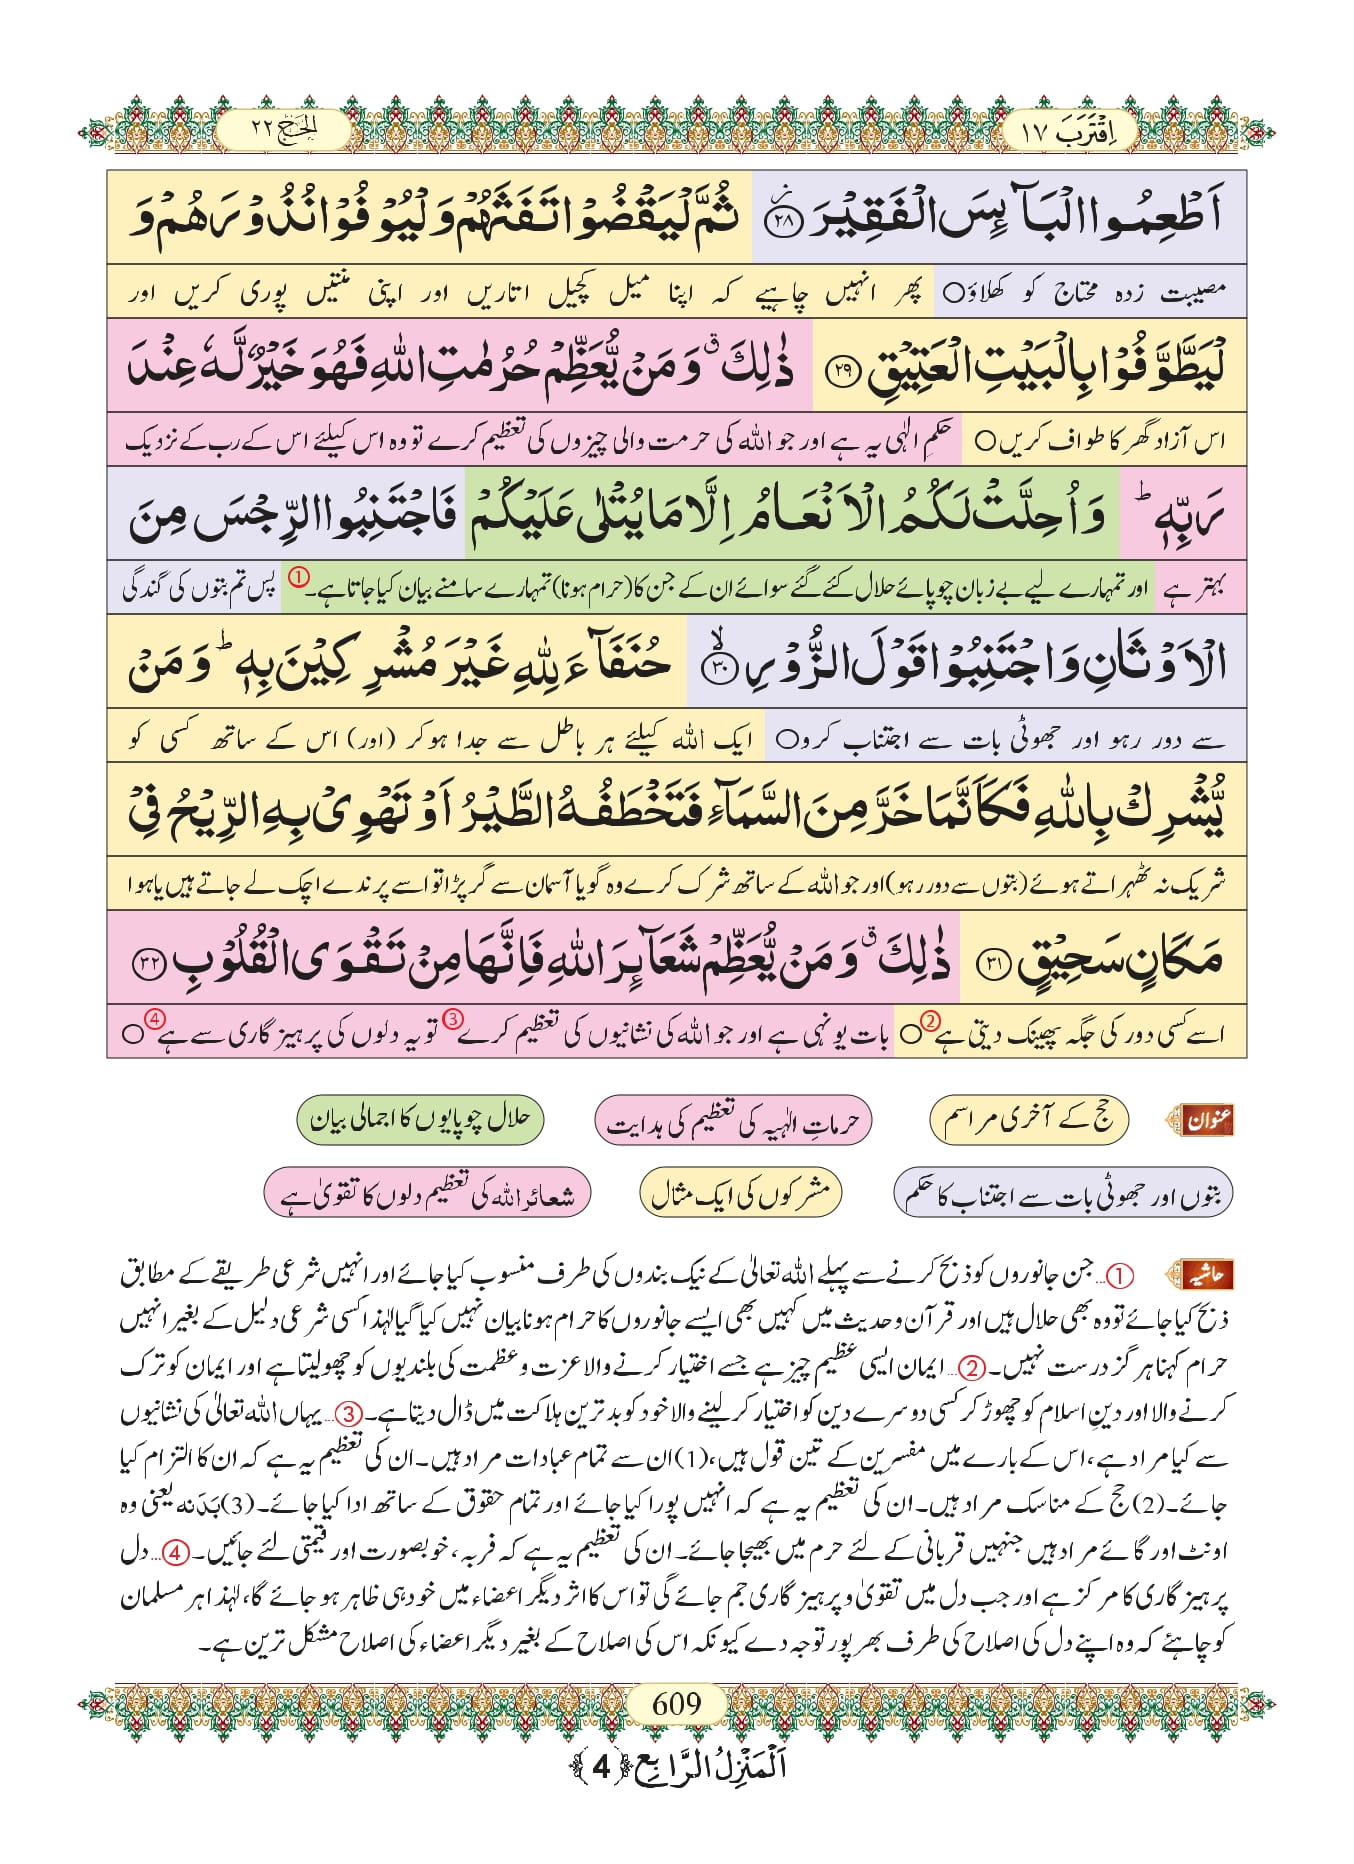 اِقْتَرَبَ ١٧
الحَجّ ٢٢
اَطْعِمُوا الْبَآئِسَ الْفَقِیْرَ ﴿۲۸﴾ ثُمَّ لْیَقْضُوْا تَفَثَهُمْ وَ لْیُوْفُوْا نُذُوْرَهُمْ وَ
مصیبت زدہ محتاج کو کھلاؤ○ پھر انہیں چاہیے کہ اپنا میل کچیل اتاریں اور اپنی منتیں پوری کریں اور
لْیَطَّوَّفُوْا بِالْبَیْتِ الْعَتِیْقِ ﴿۲۹﴾ ذٰلِكَ ۗ وَ مَنْ یُّعَظِّمْ حُرُمٰتِ اللّٰهِ فَهُوَ خَیْرٌ لَّهٗ عِنْدَ
اس آزاد گھر کا طواف کریں○ حکمِ الٰہی یہ ہے اور جو اللہ کی حرمت والی چیزوں کی تعظیم کرے تو وہ اس کیلئے اس کے رب کے نزدیک
رَبِّهٖ ؕ وَ اُحِلَّتْ لَكُمُ الْاَنْعَامُ اِلَّا مَا یُتْلٰى عَلَیْكُمْ فَاجْتَنِبُوا الرِّجْسَ مِنَ
بہتر ہے اور تمہارے لیے بے زبان چوپائے حلال کئے گئے سوائے ان کے جن کا (حرام ہونا) تمہارے سامنے بیان کیا جاتا ہے۔① پس تم بتوں کی گندگی
الْاَوْثَانِ وَ اجْتَنِبُوْا قَوْلَ الزُّوْرِ ۙ﴿۳۰﴾ حُنَفَآءَ لِلّٰهِ غَیْرَ مُشْرِكِیْنَ بِهٖ ؕ وَ مَنْ
سے دور رہو اور جھوٹی بات سے اجتناب کرو○ ایک اللہ کیلئے ہر باطل سے جدا ہوکر (اور) اس کے ساتھ کسی کو
یُّشْرِكْ بِاللّٰهِ فَكَاَنَّمَا خَرَّ مِنَ السَّمَآءِ فَتَخْطَفُهُ الطَّیْرُ اَوْ تَهْوِیْ بِهِ الرِّیْحُ فِیْ
شریک نہ ٹھہراتے ہوئے (بتوں سے دور رہو) اور جو اللہ کے ساتھ شرک کرے وہ گویا آسمان سے گر پڑا تو اسے پرندے اچک لے جاتے ہیں یا ہوا
مَكَانٍ سَحِیْقٍ ﴿۳۱﴾ ذٰلِكَ ۗ وَ مَنْ یُّعَظِّمْ شَعَآئِرَ اللّٰهِ فَاِنَّهَا مِنْ تَقْوَى الْقُلُوْبِ ﴿۳۲﴾
اسے کسی دور کی جگہ پھینک دیتی ہے②○ بات یونہی ہے اور جو اللہ کی نشانیوں کی تعظیم کرے③ تو یہ دلوں کی پرہیزگاری سے ہے④○
عنوان حج کے آخری مراسم حرماتِ الٰہیہ کی تعظیم کی ہدایت حلال چوپایوں کا اجمالی بیان
بتوں اور جھوٹی بات سے اجتناب کا حکم مشرکوں کی ایک مثال شعائر اللہ کی تعظیم دلوں کا تقویٰ ہے
حاشیہ ①... جن جانوروں کو ذبح کرنے سے پہلے اللہ تعالیٰ کے نیک بندوں کی طرف منسوب کیا جائے اور انہیں شرعی طریقے کے مطابق
ذبح کیا جائے تو وہ بھی حلال ہیں اور قرآن و حدیث میں کہیں بھی ایسے جانوروں کا حرام ہونا بیان نہیں کیا گیا لہٰذا کسی شرعی دلیل کے بغیر انہیں
حرام کہنا ہرگز درست نہیں۔ ②... ایمان ایسی عظیم چیز ہے جسے اختیار کرنے والا عزت و عظمت کی بلندیوں کو چھو لیتا ہے اور ایمان کو ترک
کرنے والا اور دینِ اسلام کو چھوڑ کر کسی دوسرے دین کو اختیار کر لینے والا خود کو بدترین ہلاکت میں ڈال دیتا ہے۔ ③... یہاں اللہ تعالیٰ کی نشانیوں
سے کیا مراد ہے، اس کے بارے میں مفسرین کے تین قول ہیں، (1) ان سے تمام عبادات مراد ہیں۔ ان کی تعظیم یہ ہے کہ ان کا التزام کیا
جائے۔ (2) حج کے مناسک مراد ہیں۔ ان کی تعظیم یہ ہے کہ انہیں پورا کیا جائے اور تمام حقوق کے ساتھ ادا کیا جائے۔ (3) بَدَنہ یعنی وہ
اونٹ اور گائے مراد ہیں جنہیں قربانی کے لئے حرم میں بھیجا جائے۔ ان کی تعظیم یہ ہے کہ فربہ، خوبصورت اور قیمتی لئے جائیں۔ ④... دل
پرہیزگاری کا مرکز ہے اور جب دل میں تقویٰ و پرہیزگاری جم جائے گی تو اس کا اثر دیگر اعضاء میں خود ہی ظاہر ہو جائے گا، لہٰذا ہر مسلمان
کو چاہئے کہ وہ اپنے دل کی اصلاح کی طرف بھرپور توجہ دے کیونکہ اس کی اصلاح کے بغیر دیگر اعضاء کی اصلاح مشکل ترین ہے۔
609
اَلْمَنْزِلُ الرَّابِع ﴿4﴾